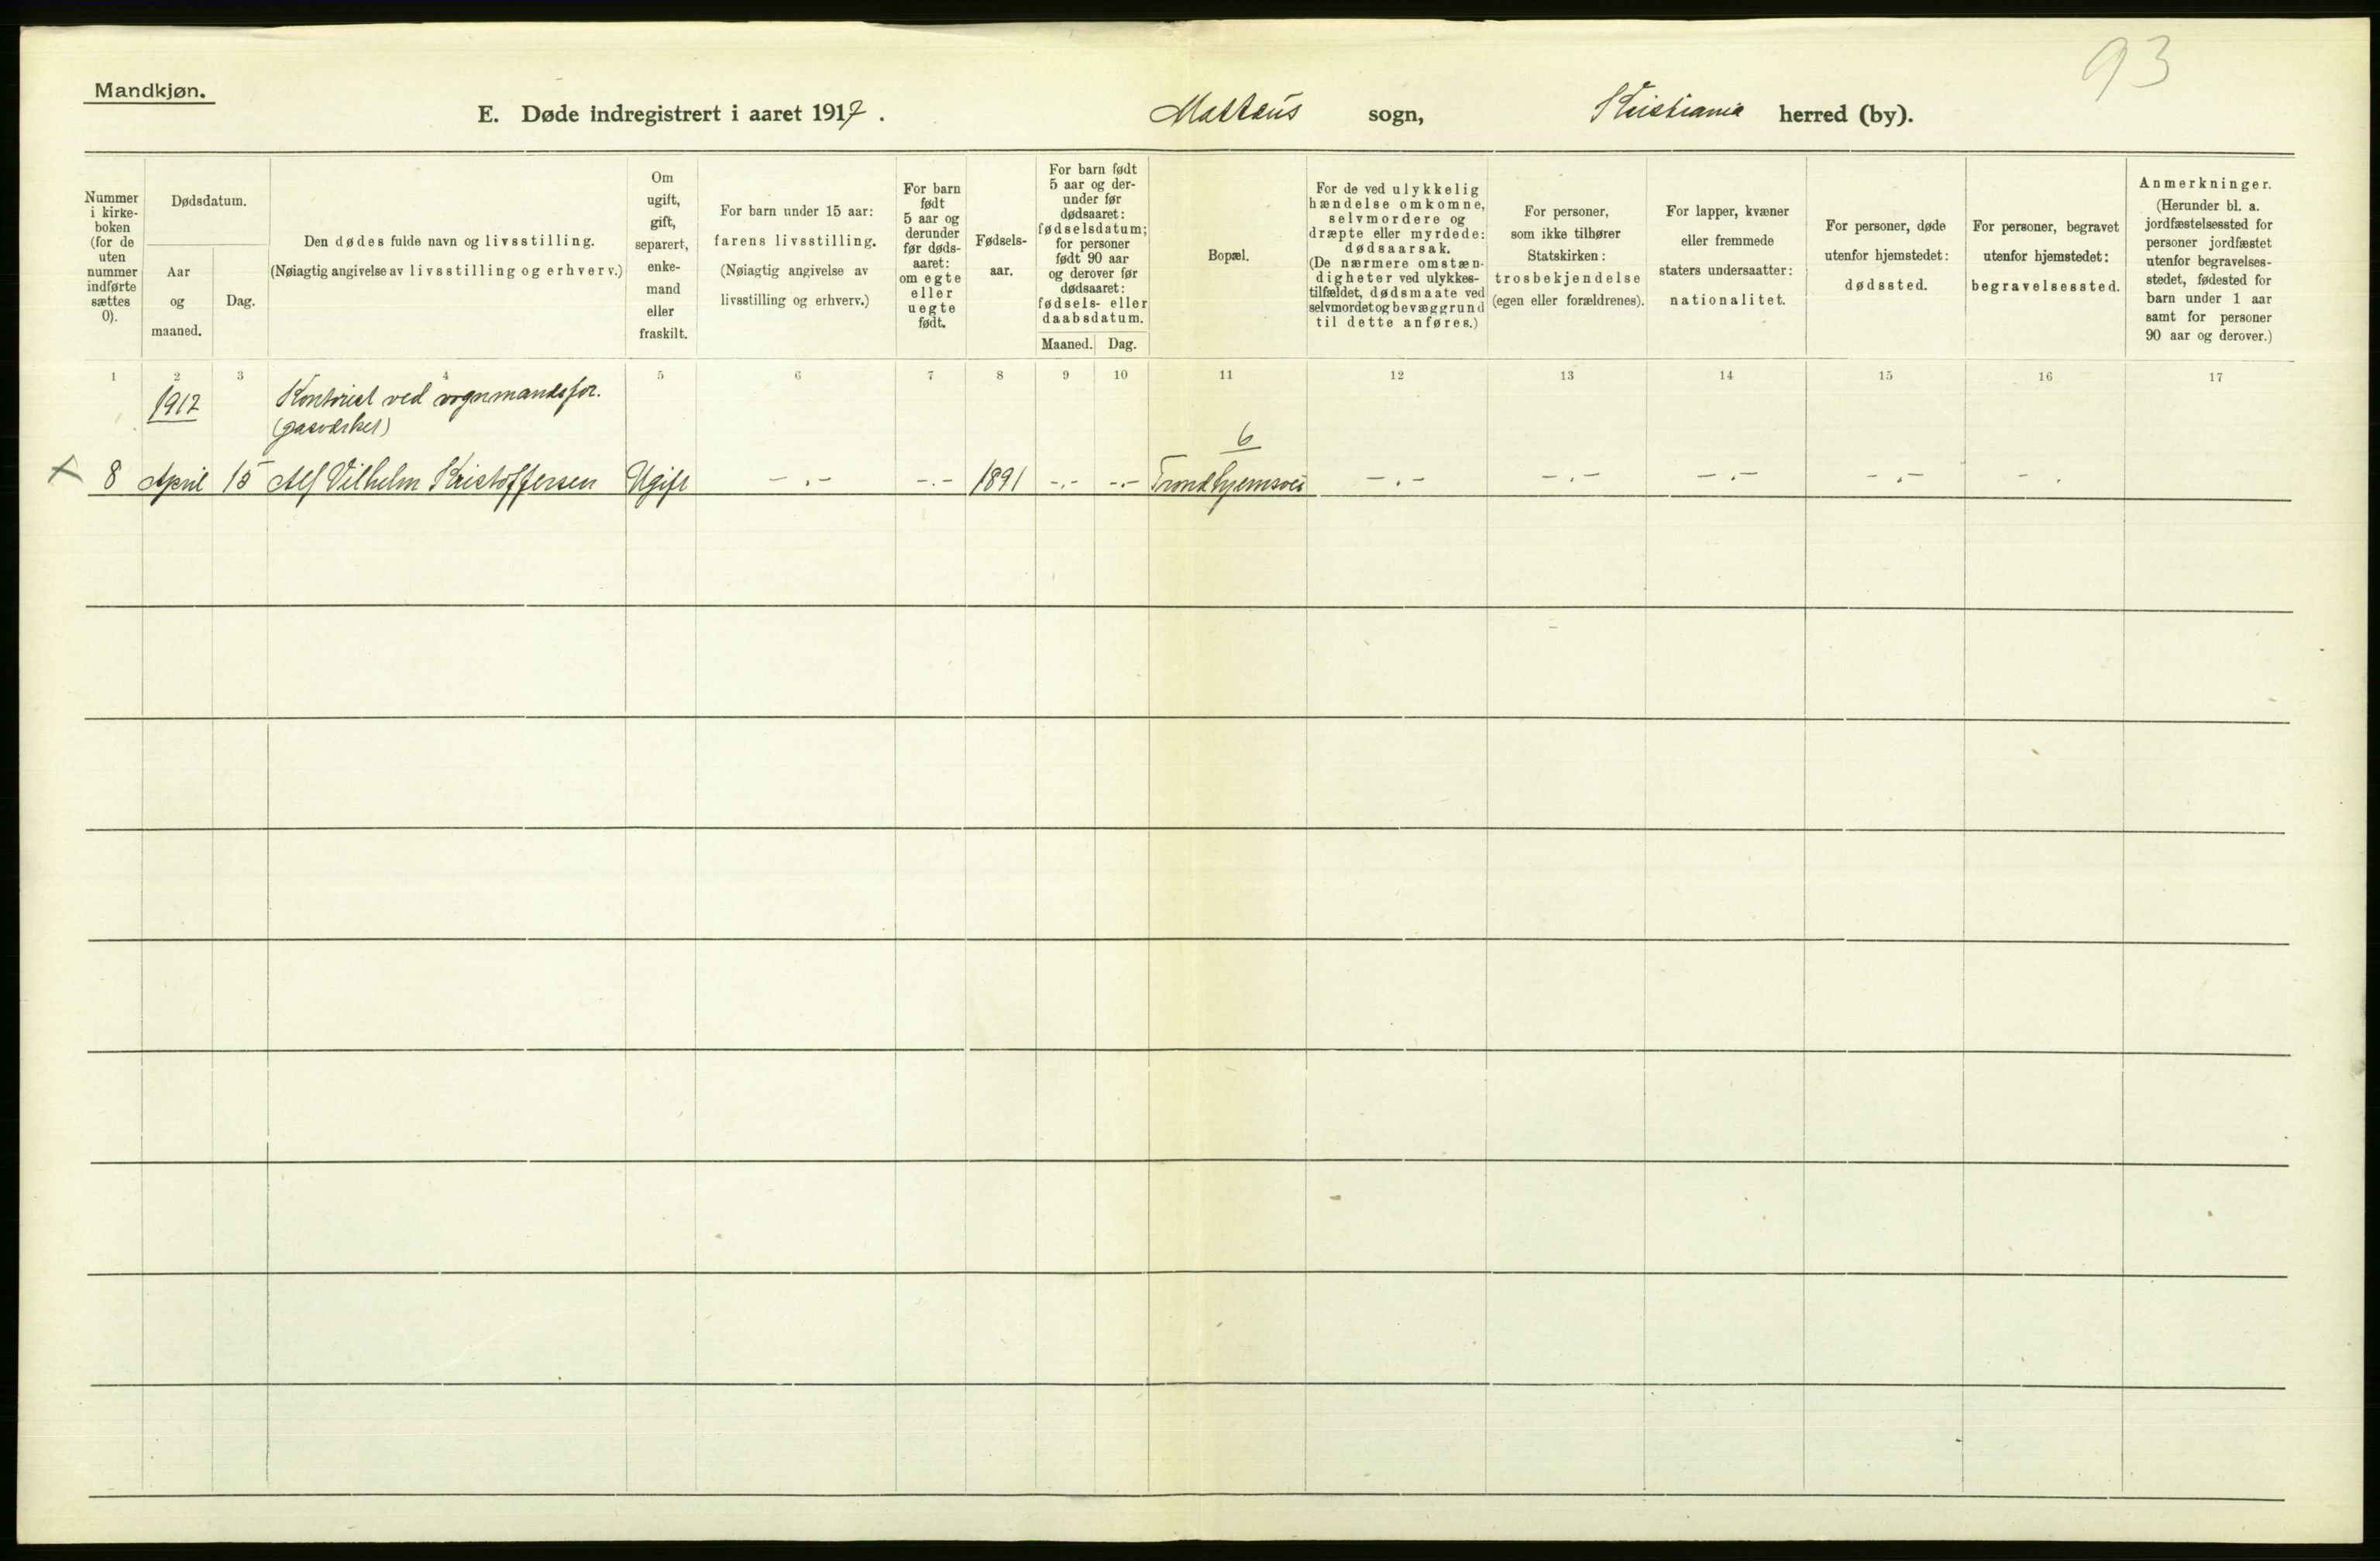 93
Mandkjøn.
E. Døde indregistrert i aaret 1917. Mattæus sogn, Kristiania herred (by).
Nummer
i kirke-
boken
(for de
uten
nummer
indførte
sættes
0).
Dødsdatum.
Aar
og
maaned.
Dag.
Den dødes fulde navn og livsstilling.
(Nøiagtig angivelse av livsstilling og erhverv.)
Om
ugift,
gift,
separert,
enke-
mand
eller
fraskilt.
For barn under 15 aar:
farens livsstilling.
(Nøiagtig angivelse av
livsstilling og erhverv.)
For barn
født
5 aar og
derunder
før døds-
aaret:
om egte
eller
uegte
født.
Fødsels-
aar.
For barn født
5 aar og der-
under før
dødsaaret:
fødselsdatum;
for personer
født 90 aar
og derover før
dødsaaret:
fødsels- eller
daabsdatum.
Maaned. Dag.
Bopæl.
For de ved ulykkelig
hændelse omkomne,
selvmordere og
dræpte eller myrdede:
dødsaarsak.
(De nærmere omstæn-
digheter ved ulykkes-
tilfældet, dødsmaate ved
selvmordet og bevæggrund
til dette anføres.)
For personer,
som ikke tilhører
Statskirken:
trosbekjendelse
(egen eller forældrenes).
For lapper, kvæner
eller fremmede
staters undersaatter:
nationalitet.
For personer, døde
utenfor hjemstedet:
dødssted.
For personer, begravet
utenfor hjemstedet:
begravelsessted.
Anmerkninger.
(Herunder bl. a.
jordfæstelsessted for
personer jordfæstet
utenfor begravelses-
stedet, fødested for
barn under 1 aar
samt for personer
90 aar og derover.)
1 2 3 4 5 6 7 8 9 10 11 12 13 14 15 16 17
1917 Kontorist ved vognmandsfor.
(gasverket)
6
x 8 April 15 Alf Vilhelm Kristoffersen Ugift -.- -.- 1891 -.- -.- Trondhjemsvei -.- -.- -.- -.- -.